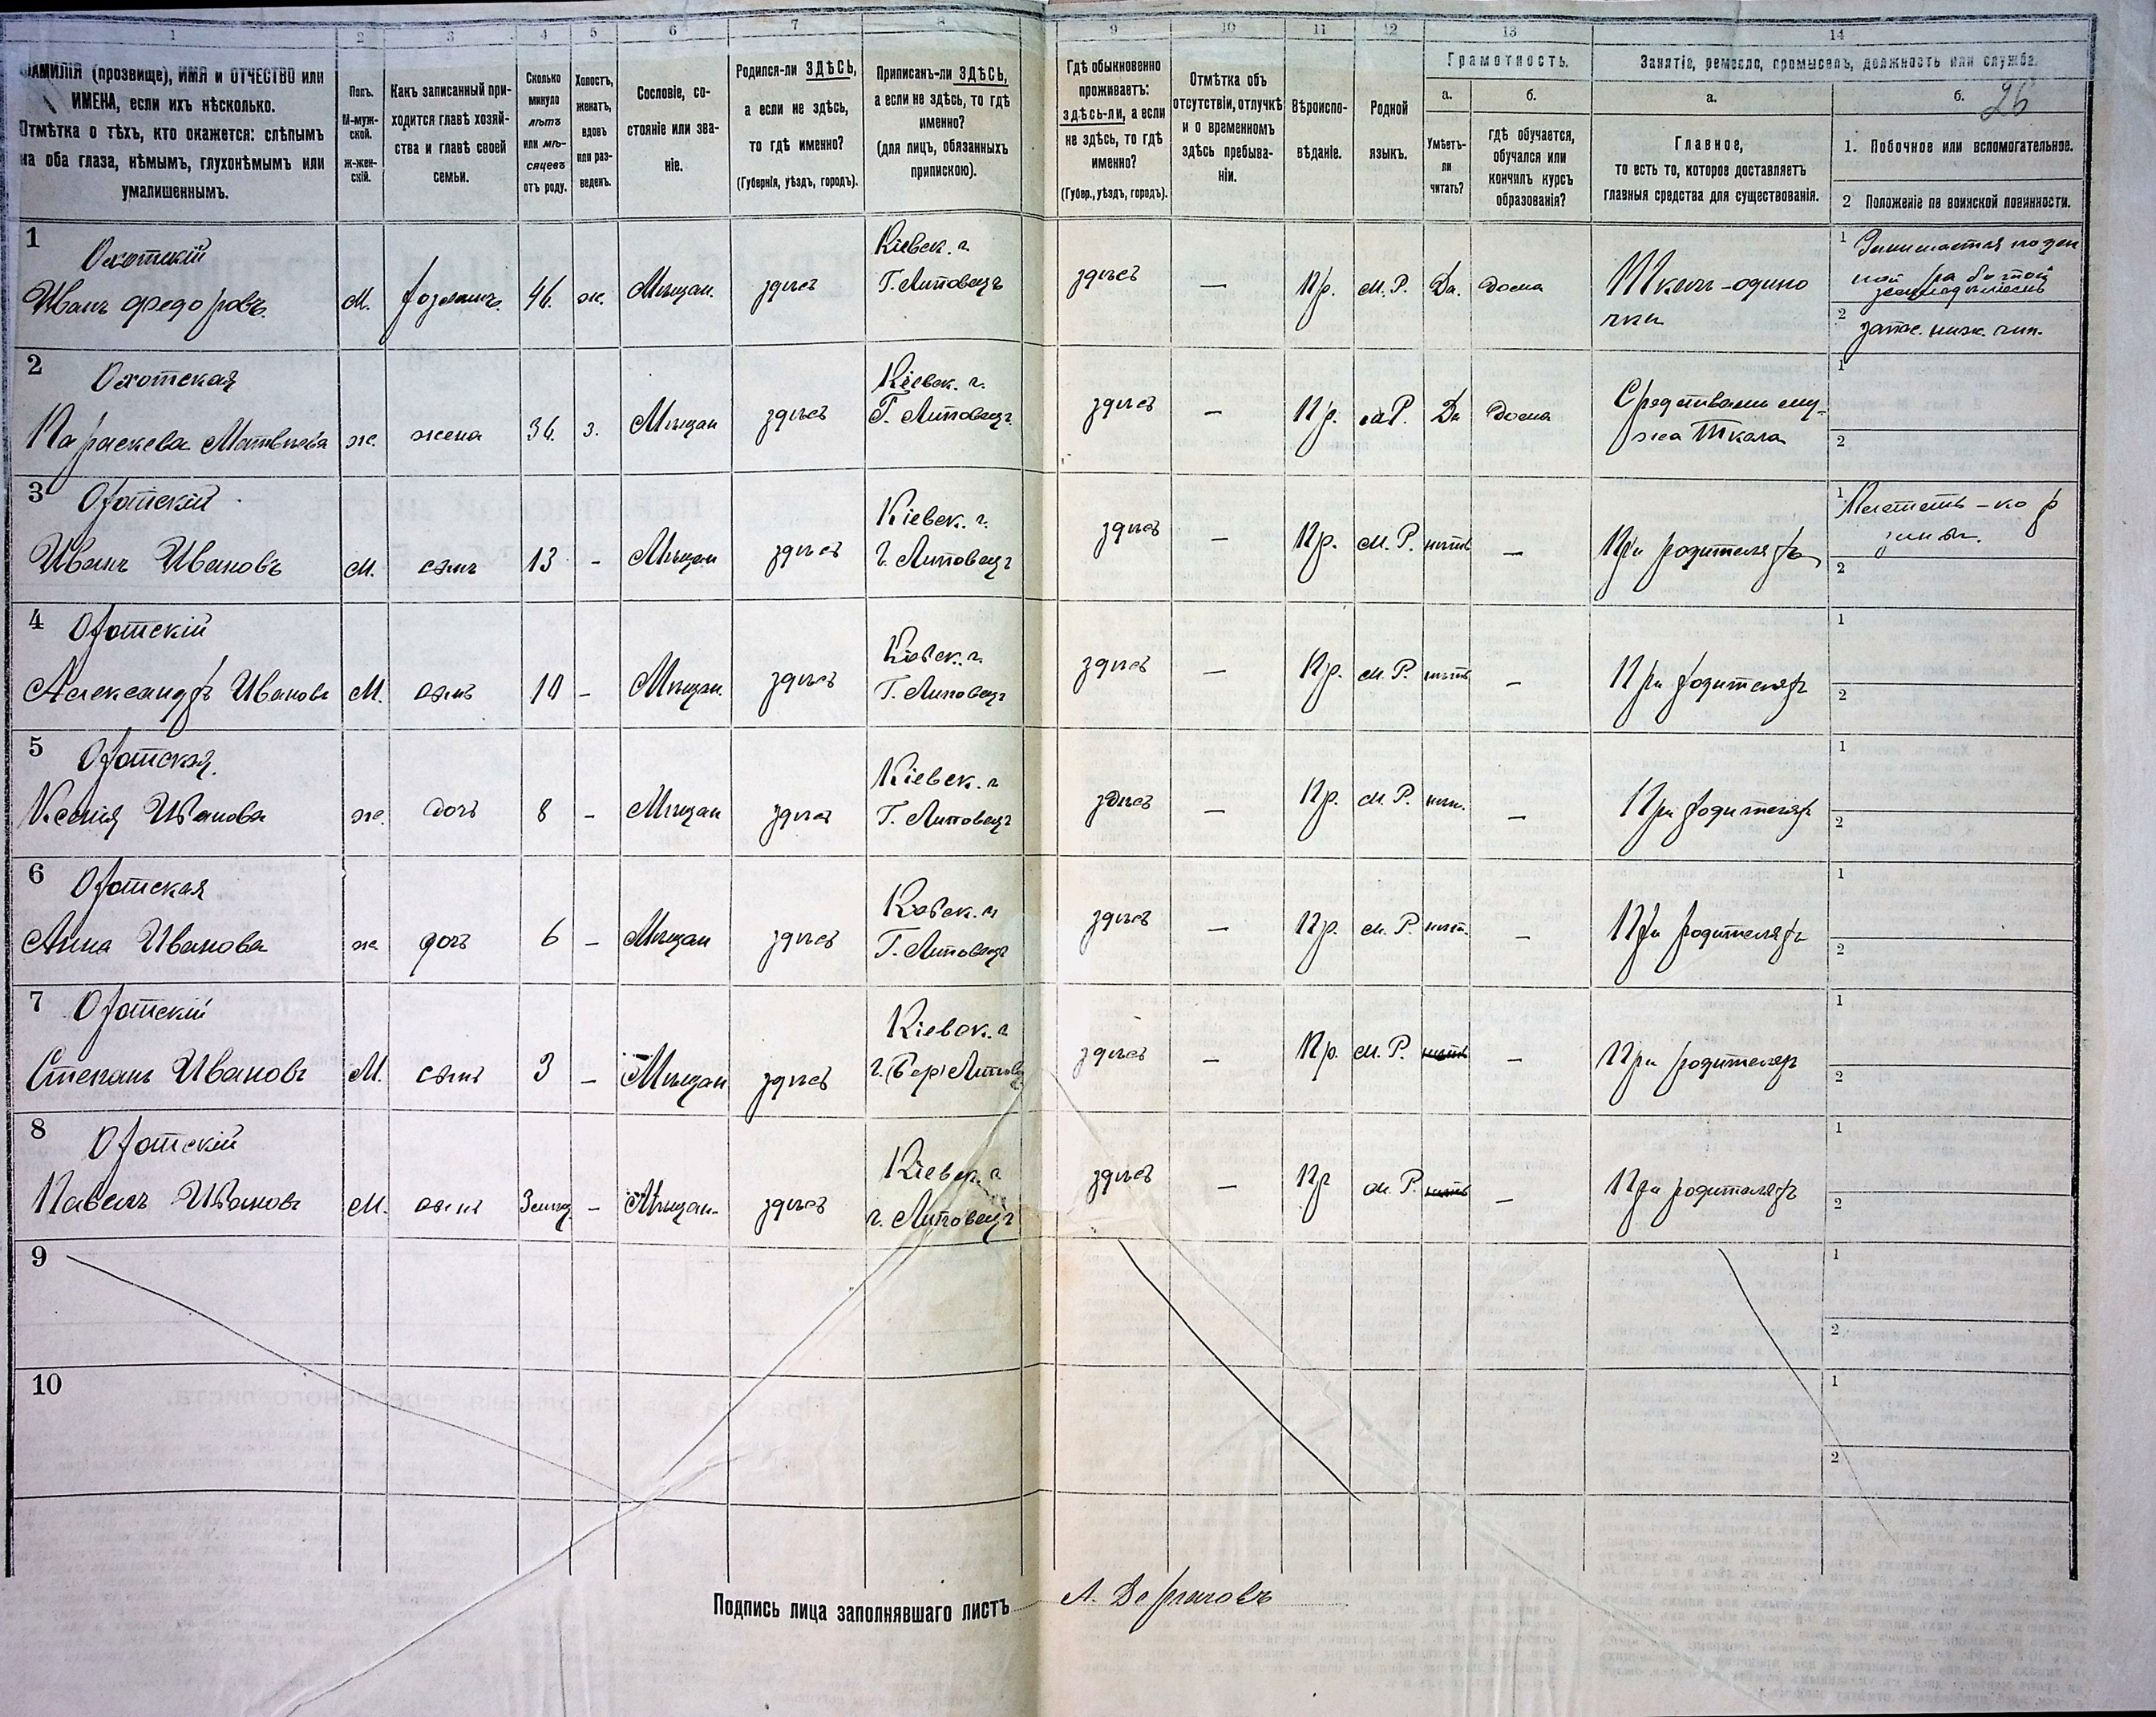 1 2 3 4 5 6 7 8 9 10 11 12 13 14
ФАМИЛІЯ (прозвище), ИМЯ и ОТЧЕСТВО или
ИМЕНА, если ихъ нѣсколько.
Отмѣтка о тѣхъ, кто окажется: слѣпымъ
на оба глаза, нѣмымъ, глухонѣмымъ или
умалишеннымъ.
Полъ.
М-муж-
ской.
ж-жен-
скій.
Какъ записанный при-
ходится главѣ хозяй-
ства и главѣ своей
семьи.
Сколько
минуло
лѣтъ
или мѣ-
сяцевъ
отъ роду.
Холостъ,
женатъ,
вдовъ
или раз-
веденъ.
Сословіе, со-
стояніе или зва-
ніе.
Родился-ли ЗДѢСЬ,
а если не здѣсь,
то гдѣ именно?
(Губернія, уѣздъ, городъ).
Приписанъ-ли ЗДѢСЬ,
а если не здѣсь, то гдѣ
именно?
(для лицъ, обязанныхъ
припискою).
Гдѣ обыкновенно
проживаетъ:
здѣсь-ли, а если
не здѣсь, то гдѣ
именно?
(Губер., уѣздъ, городъ).
Отмѣтка объ
отсутствіи, отлучкѣ
и о временномъ
здѣсь пребыва-
ніи.
Вѣроиспо-
вѣданіе.
Родной
языкъ.
Грамотность.
а.
Умѣетъ-
ли
читать?
б.
гдѣ обучается,
обучался или
кончилъ курсъ
образованія?
Занятіе, ремесло, промыселъ, должность или служба.
а.
Главное,
то есть то, которое доставляетъ
главныя средства для существованія.
б.
26
1. Побочное или вспомогательное.
2 Положеніе по воинской повинности.
1 Охотскій
Иванъ Федоровъ. М. хозяинъ. 46. ж. Мѣщан. здѣсь
Кіевск. г.
Г. Липовецъ
здѣсь — Пр. М.Р. Да. Дома
Ткач-одино
чка
1 Занимается поден
ной работой
2 запас. ниж. чин.
2 Охотская
Параскева Матвѣева ж. жена 36. з. Мѣщан здѣсь
Кіевск. г.
Г. Липовецъ
здѣсь — Пр. М.Р. Да Дома
Средствами му-
жа Ткача
1
2
3 Охотскій
Иванъ Ивановъ М. сынъ 13 - Мѣщан здѣсь
Кіевск. г.
г. Липовецъ
здѣсь — Пр. М.Р. нѣтъ — При родителяхъ
1 Плететъ-кор
зины.
2
4 Охотскій
Александръ Ивановъ М. сынъ 10 - Мѣщан. здѣсь
Кіевск. г.
Г. Липовецъ
здѣсь — Пр. М.Р. нѣтъ — При родителяхъ
1
2
5 Охотская
Ксенія Иванова ж. дочь 8 - Мѣщан здѣсь
Кіевск. г
Г. Липовецъ
здѣсь — Пр. М.Р. нѣт. — При родителяхъ
1
2
6 Охотская
Анна Иванова ж дочь 6 - Мѣщан здѣсь
Кіевск. г
Г. Липовецъ
здѣсь — Пр. М.Р. нѣт. — При родителяхъ
1
2
7 Охотскій
Степанъ Ивановъ М. сынъ 3 - Мѣщан здѣсь
Кіевск. г
здѣсь — Пр. М.Р. нѣтъ — При родителяхъ
1
2
8 Охотскій
Павелъ Ивановъ М. сынъ - Мѣщан- здѣсь
Кіевск. г
г. Липовецъ
здѣсь — Пр М.Р. нѣтъ — При родителяхъ
1
2
9
1
2
10
1
2
Подпись лица заполнявшаго листъ